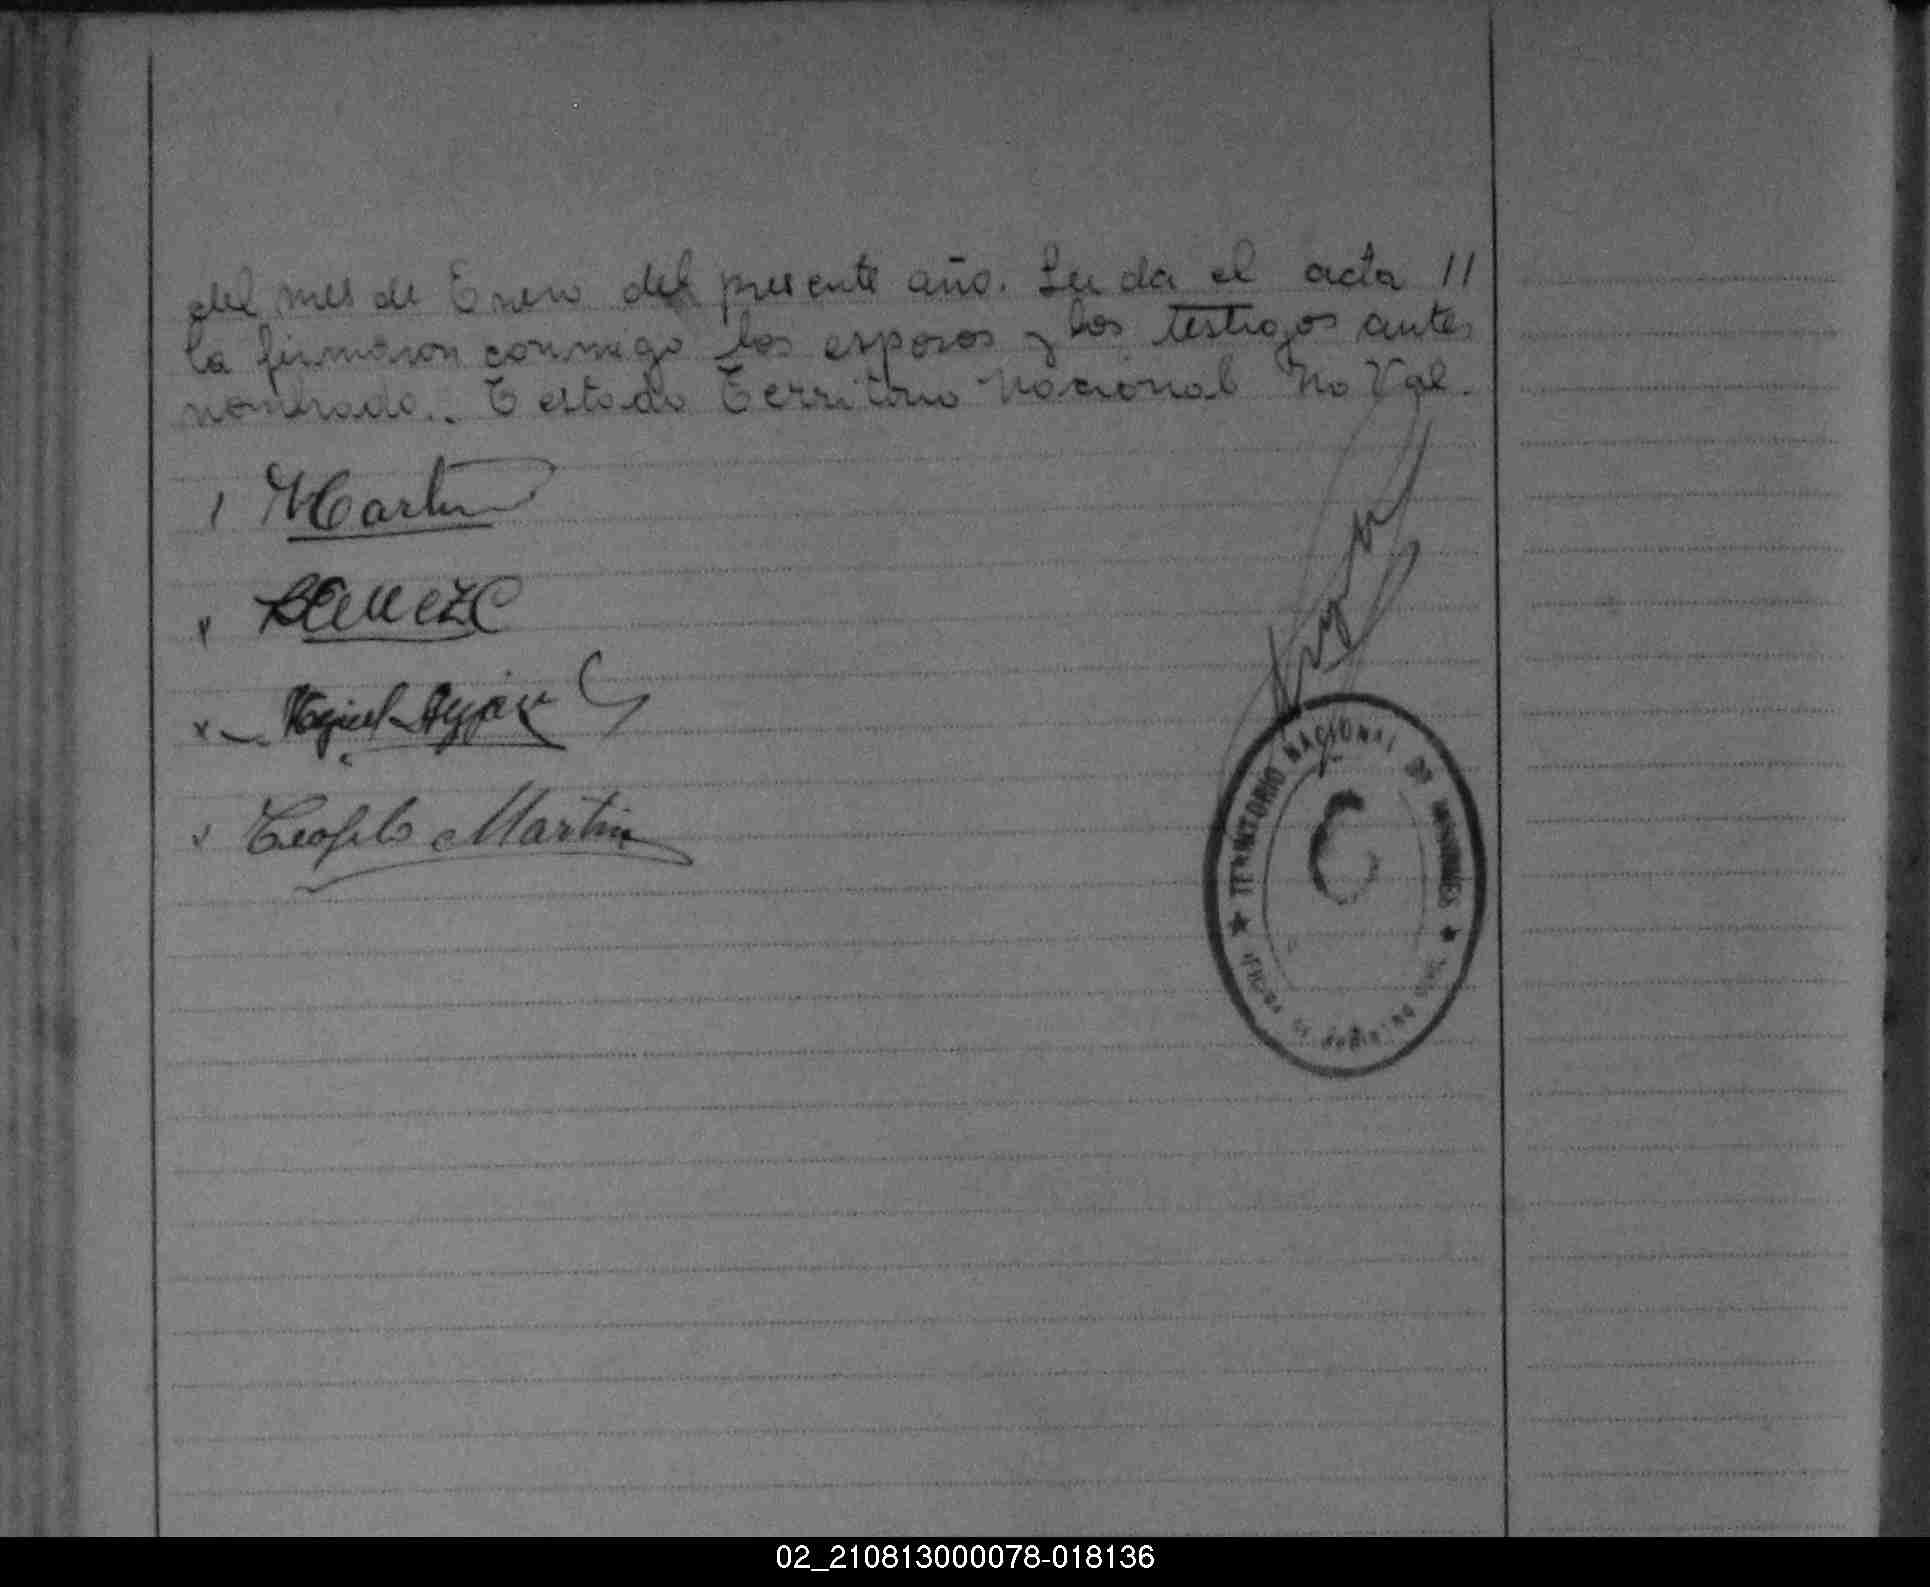 del mes de Enero del presente año. Leida el acta //
la firmaron conmigo los esposos y los testigos antes
nombrado.. Testado Territorio Nacional No Vale.
Martin
Teofilo Martin
TERRITORIO NACIONAL DE MISIONES
OFICINA DE REGISTRO CIVIL
02_210813000078-018136